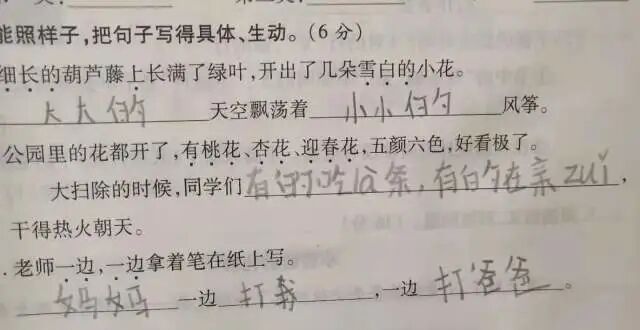 能照样子,把句子写得具体、生动。(6分)
细长的葫芦藤上长满了绿叶,开出了几朵雪白的小花。
大大的天空飘荡着小小的风筝。
公园里的花都开了,有桃花、杏花、迎春花,五颜六色,好看极了。
大扫除的时候,同学们有的吃冰条,有的在亲zuǐ,
干得热火朝天。
.老师一边,一边拿着笔在纸上写。
妈妈一边打我,一边打爸爸。